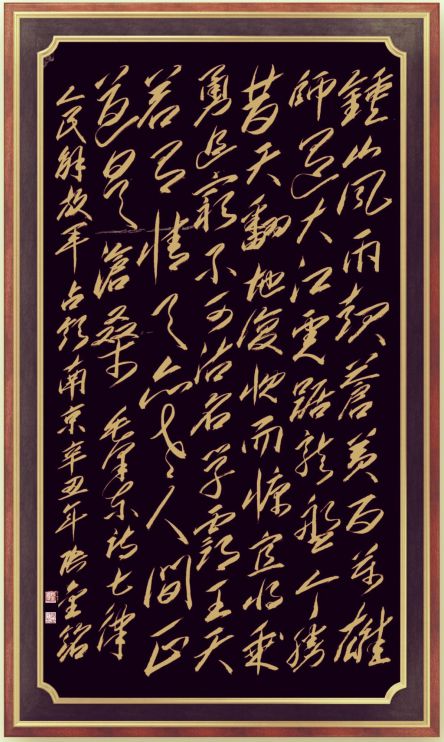 鍾山風雨起蒼黃百萬雄
師過大江虎踞龍盤今勝
昔天翻地復慨而慷宜將乘
勇追窮不可沽名學霸王天
若有情天亦老人間正
道是滄桑 毛澤東詩七律
人民解放軍占領南京辛丑年金銘